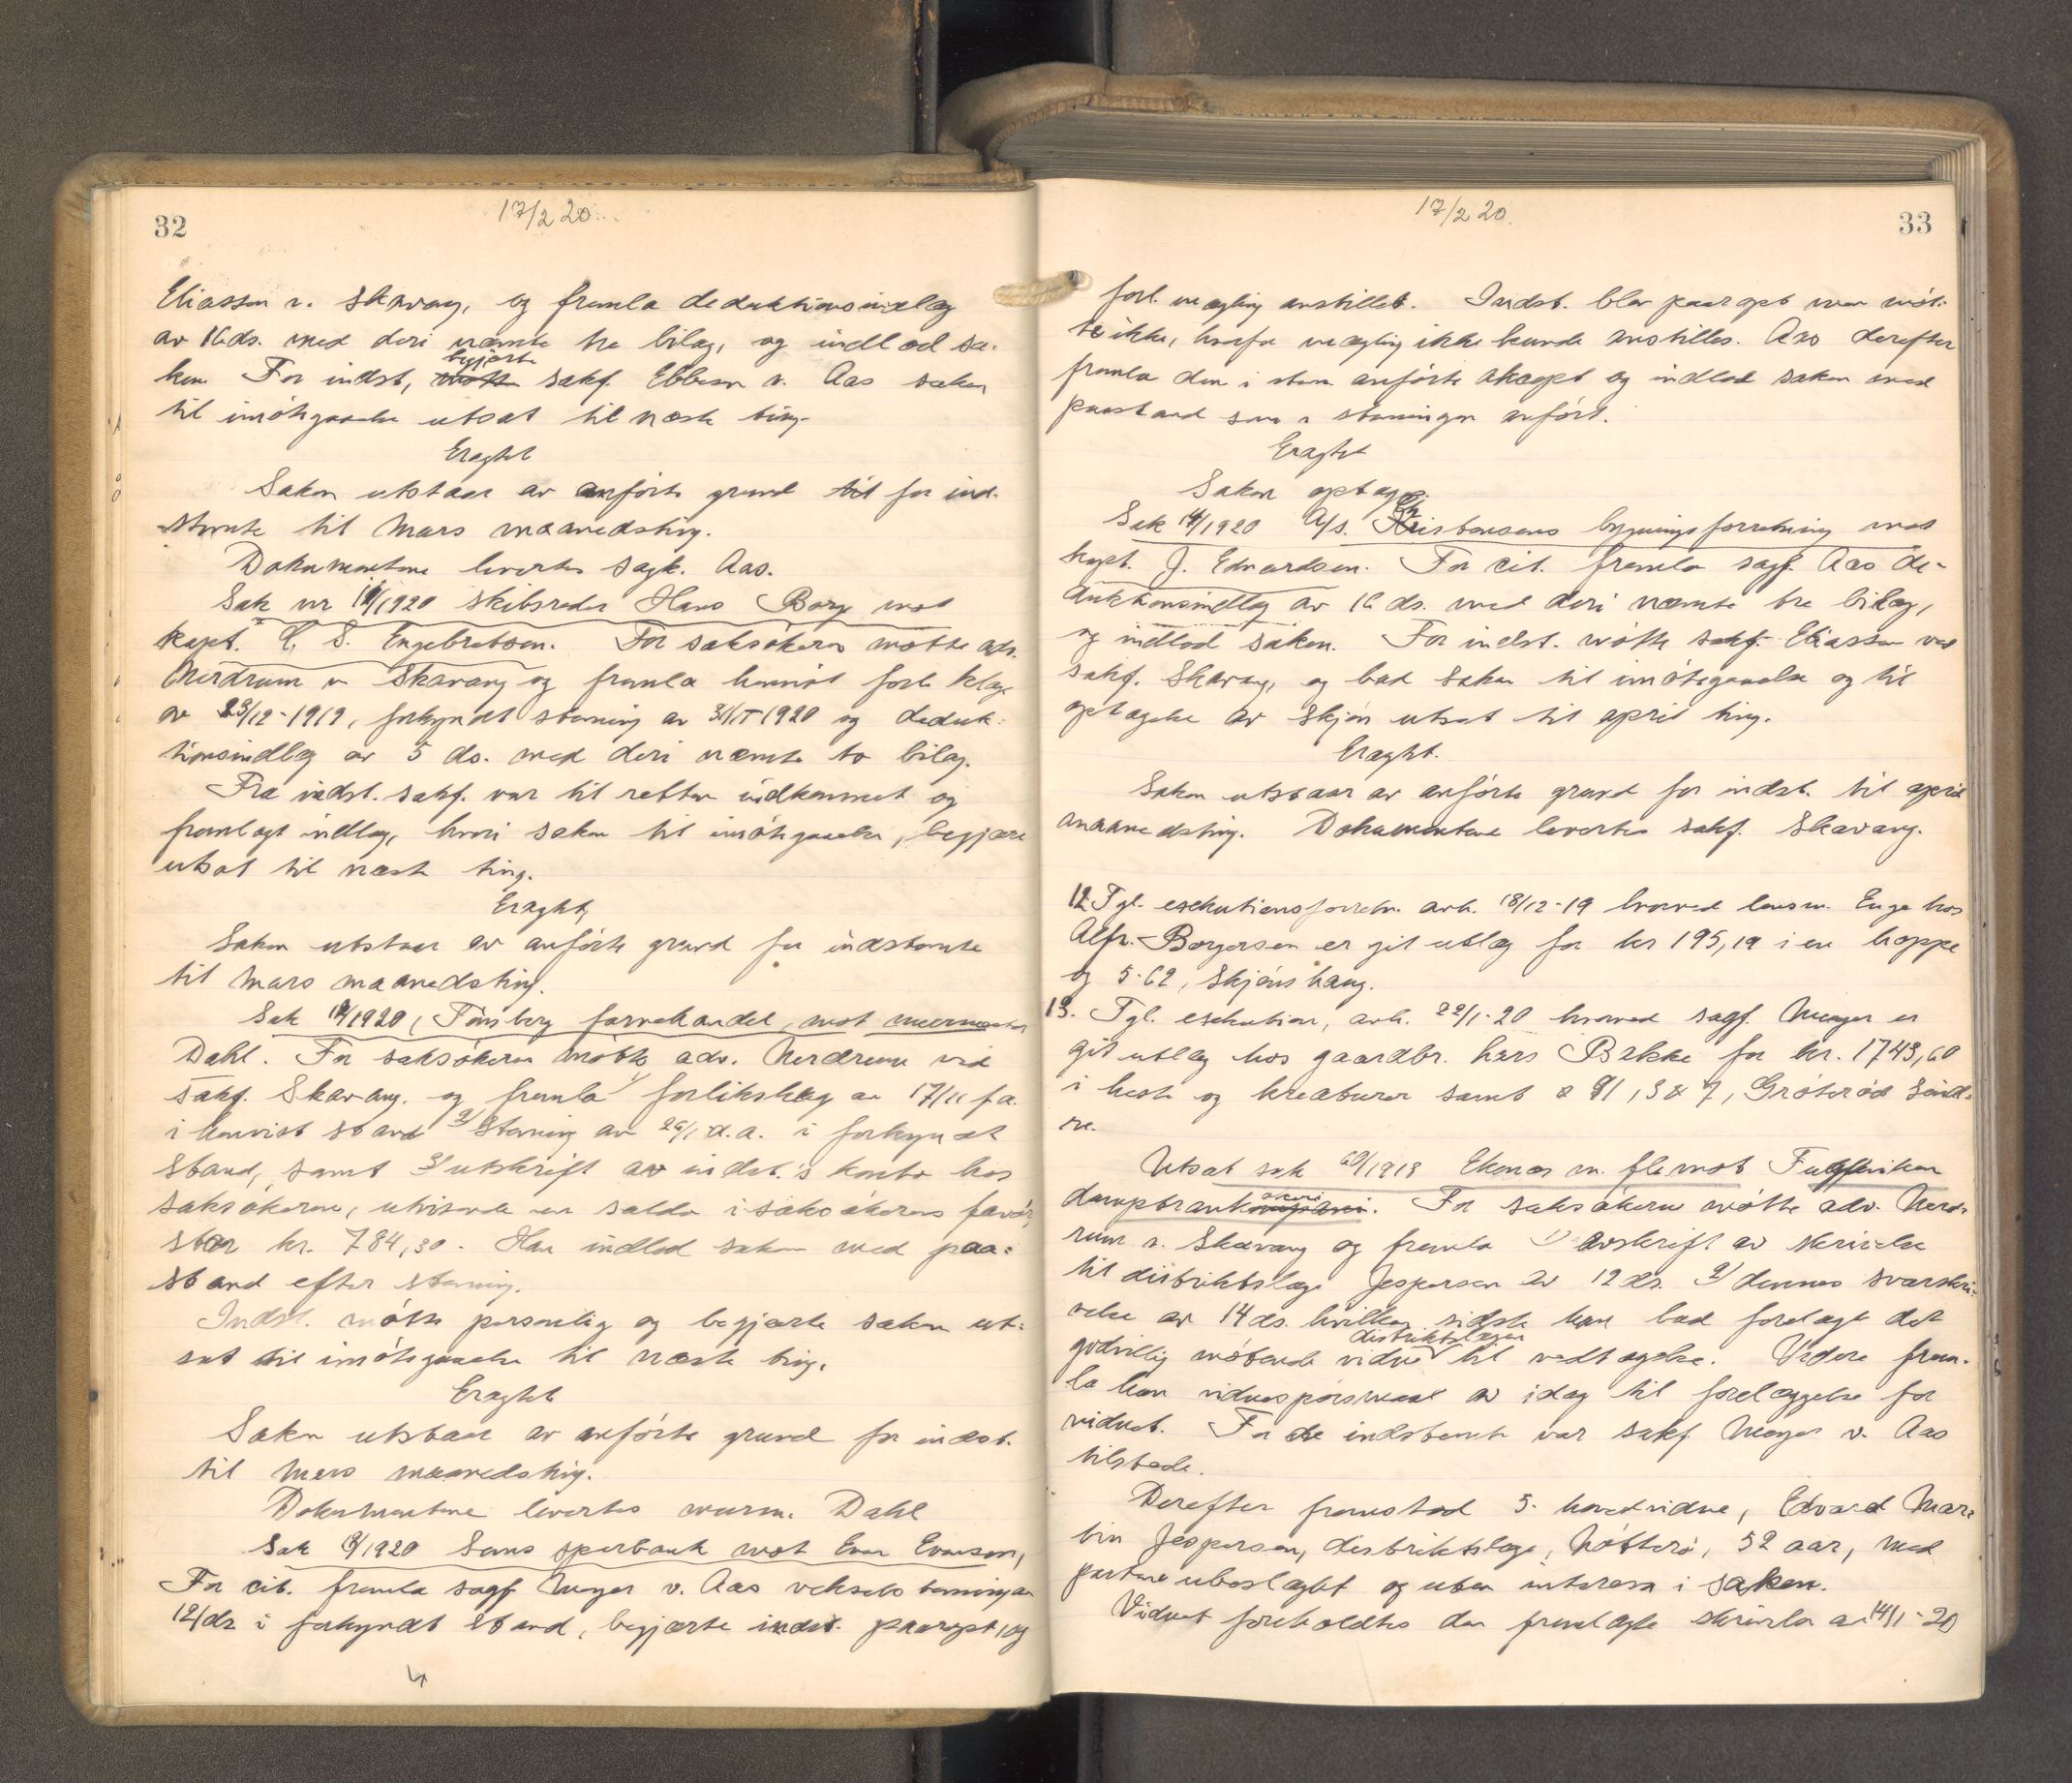 32
17/2 20.
Eliassen v. Skavang, og fremla deduktionsindlæg
av 16 ds. med deri nævnte tre bilag, og indlod sa-
ken For indst, møtte begjærte sakf. Ebbesen v. Aas saken
til imøtegaaelse utsat til næste ting.
Eragtet
Saken utstaar av anførte grund til for ind-
stevnte til Mars maanedsting.
Dokumentene levertes sagf. Aas.
Sak nr /1920 skibsreder Hans Borge mot
kapt. S. Engebretsen. For saksøkeren møtte adv.
Nerdrum v Skavang og fremla henvist forl. klage
av 23/12-1919, forkyndt stevning av 31/1 1920 og deduk-
tionsindlæg av 5 ds. med deri nævnte to bilag.
Fra indst. sakf. var til retten indkommet og
fremlagt indlæg, hvori saken til imøtegaaelse, begjæres
utsat til næste ting.
Eragtet,
Saken utstaar av anførte grund for indstevnte
til Mars maanedsting.
Sak /1920, Tønsberg farvehandel, mot murmester
Dahl. For saksøkeren møtte adv. Nerdrum ved
sakf. Skavang. og fremla 1/ forliksklage av 17/11 f.a.
i henvist stand 2/ Stevning av 26/1 d.a. i forkyndt
stand, samt 3/ utskrift av indst.'s konto hos
saksøkeren, utvisende en saldo i saksøkerens favør
stor kr. 784,30. Han indlod saken med paa-
stand efter stevning.
Indst. møtte personlig og begjærte saken ut-
sat til imøtegaaelse til næste ting.
Eragtet
Saken utstaar av anførte grund for indst.
til Mars maanedsting.
Dokumentene levertes murm. Dahl
Sak /1920 Sems sparebank mot Evensen,
For cit. fremla sagf Meyer v. Aas vekselstevning av
12/ds i forkyndt stand, begjærte indst. paaropt, og
33
17/2 20.
forl. mægling anstillet. Indst. blev paaropt men møt-
te ikke, hvorfor mægling ikke kunde anstilles. Aas derefter
fremla den i stevn anførte aksept og indlod saken med
paastand som i stevningen anført.
Eragtet
Saken optages.
Sak 14/1920 A/s. Christensens bygningsforretning mot
kapt. J. Edvardsen. For cit. fremla sagf. Aas de-
duktionsindlæg av 16 ds. med deri nævnte tre bilag,
og indlod saken. For indst. møtte sakf. Eliassen ved
sakf. Skavang, og bad saken til imøtegaaelse og til
optagelse av skjøn utsat til april ting.
Eragtet.
Saken utstaar av anførte grund for indst. til april
maanedsting. Dokumentene levertes sakf. Skavang.
12. Tgl. exekutionsforretn. avh. 18/12-19 hvorved lensm. Enge hos
Alfr. Borgersen er git utlæg for kr 195,19 i en hoppe
og 5-62, Skjønshaug.
13. Tgl. exekution, avh. 22/1-20 hvorved sagf. Meyer er
git utlæg hos gaardbr. Lars Bakke for kr. 1743,60
i heste og kreaturer samt 91, 3 & 7, Grøterød Sønd-
re.
Utsat sak /1919 Ekenæs m. fl. mot Fuglevikens
damptrankompani. For saksøkerne møtte adv. Nerd-
rum v. Skavang og fremla 1) avskrift av skrivelse
til distriktslæge Jespersen av 12 ds. 2) dennes svarskri-
velse av 14 ds. hvilken sidste han bad forelagt det
godvillig møtende vidne distriktslægen til vedtagelse. Videre frem-
la han vidnespørsmaal av idag til forelæggelse for
vidnet. For de indstevnte var sakf Meyer v. Aas
tilstede.
Derefter fremstod 5. hovedvidne, Edvard Mar-
tin Jespersen, distriktslæge, Nøtterø, 52 aar, med
partene ubeslægtet og uten interesse i saken.
Vidnet foreholdtes den fremlagte skrivelse av 14/1-20